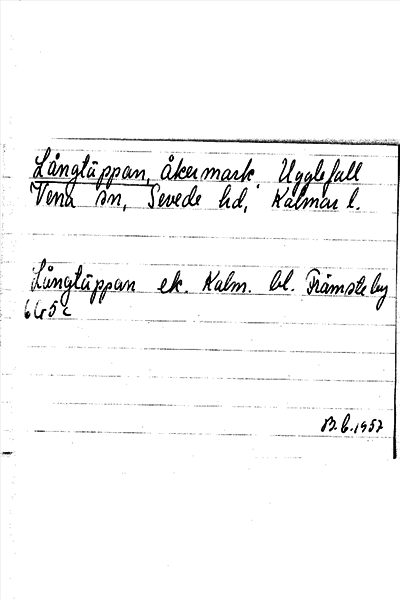 Långtäppan, åkermark Ugglefall
Vena sn, Sevede hd, Kalmar l.
Långtäppan ek. Kalm. bl. Främsteby
6G5c
B.G.1957